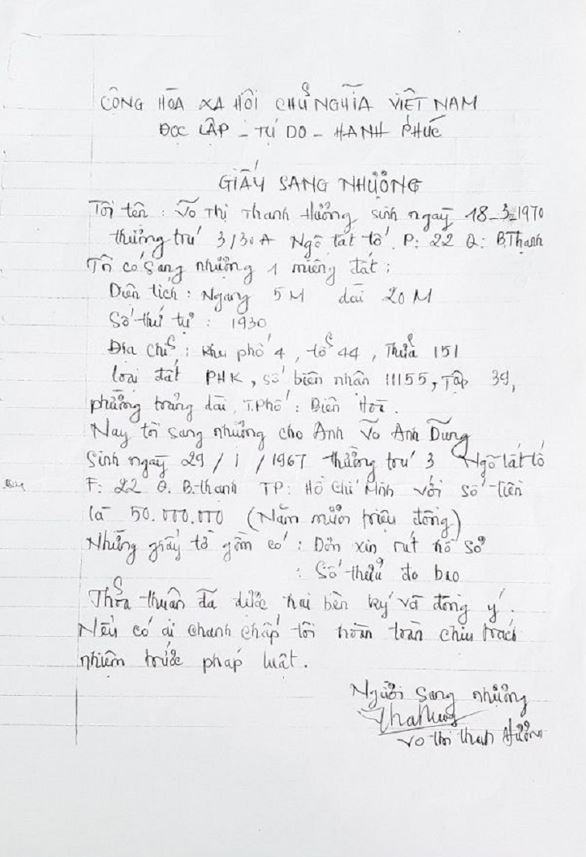 CÔNG HÒA XA HÔI CHỦ NGHĨA VIỆT NAM
ĐỌC LẬP - TỰ DO - HẠNH PHÚC
GIẤY SANG NHƯỢNG
Tôi tên : Võ Thị Thanh Hường sinh ngày 18-3-1970
thường trú 3/30A Ngô tất tố. P: 22 Q: B.Thạnh
Tôi có sang nhượng 1 miếng đất :
Diên tích : Ngang 5M dài 20M
Số thứ tự : 1930
Địa chỉ : khu phố 4, tổ 44, Thửa 151
loại đất PHK, số biên nhân 11155, Tập 39,
phường trảng dài, T.Phố : Biên Hoà.
Nay tôi sang nhượng cho Anh Võ Anh Dũng
Sinh ngày 29/1/1967 thường trú 3 Ngô tất tố
F: 22 Q. B.thạnh TP: Hồ Chí Minh với số tiền
là 50.000.000 (Năm mươi triệu đồng)
Những giấy tờ gồm có : Đơn xin rút hồ sơ
: Số thửa đo bao
Thỏa thuân đã được hai bên ký và đồng ý.
Nếu có ai chanh chấp tôi hoàn toàn chiu trách
nhiệm trước pháp luât.
Người sang nhượng
Võ Thi Thanh Hường